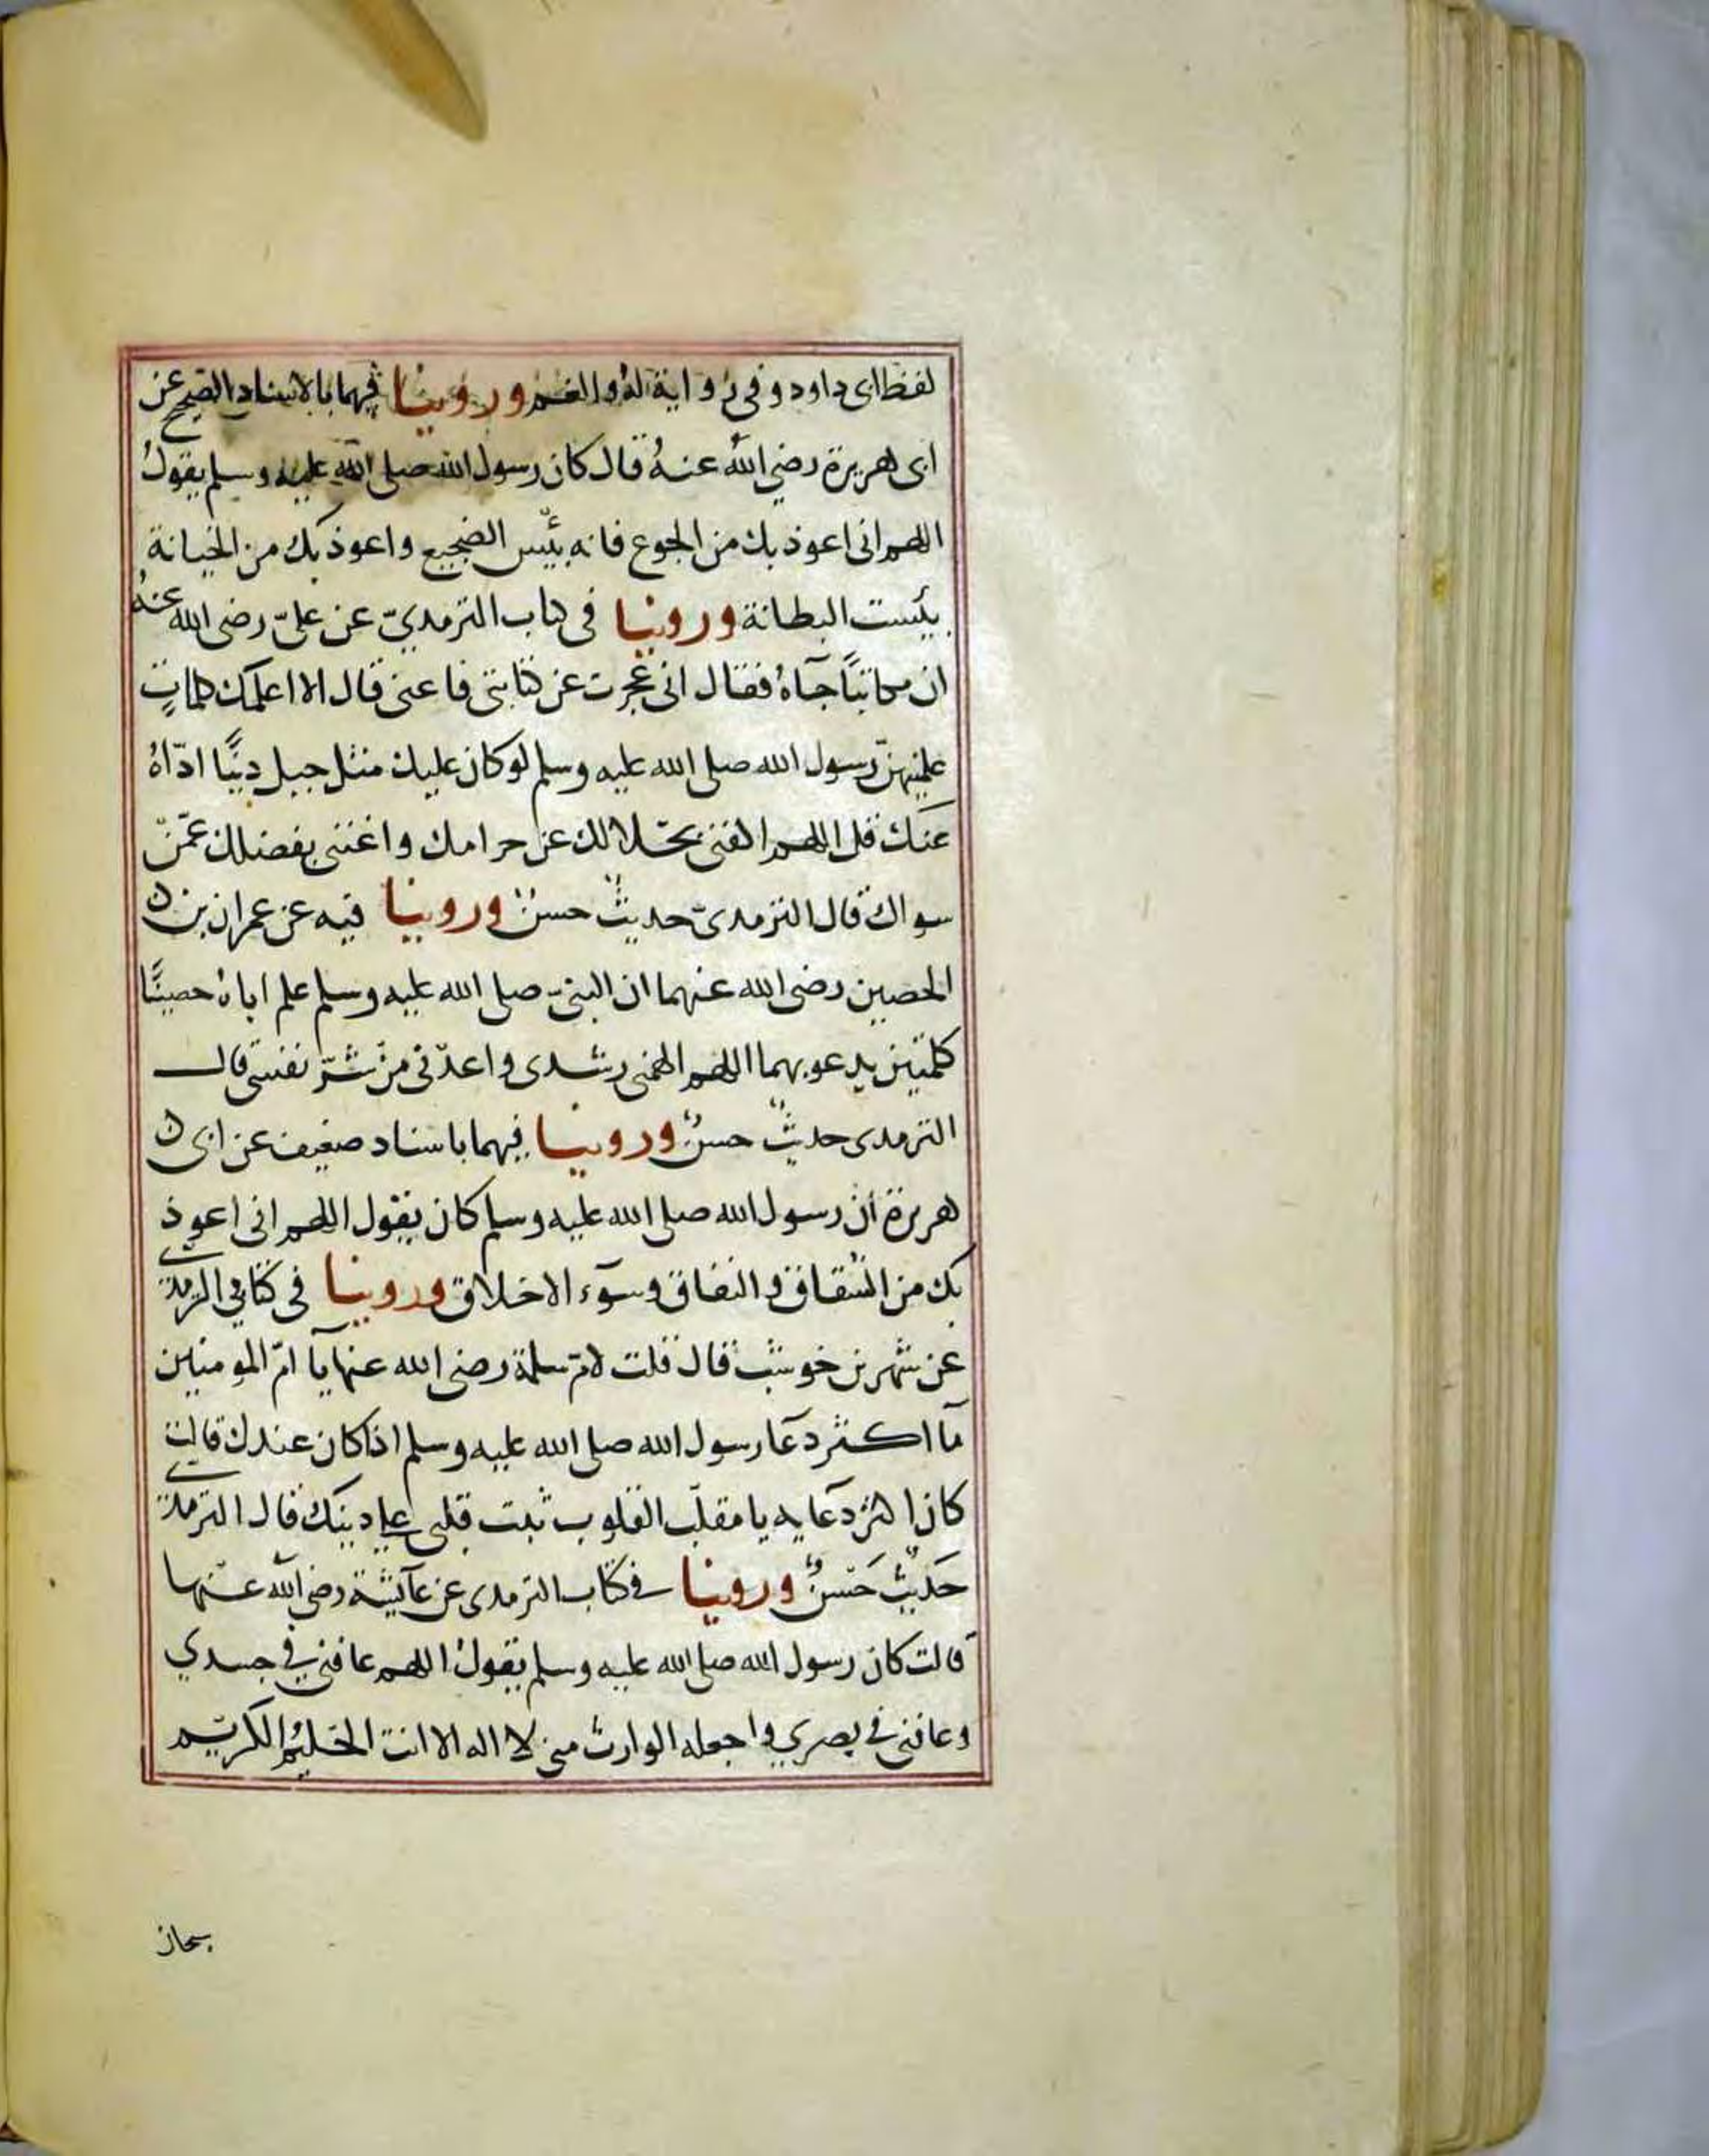 لفظ ابى داود وفي رواية له والغم وروينا فيهما بالاسناد الصحيح عن
ابى هريرة رضي الله عنه قال كان رسول الله صلى الله عليه وسلم يقول
اللهم انى اعوذ بك من الجوع فانه بئيس الضجيع واعوذ بك من الخيانة
بئيست البطانة وروينا فى كتاب الترمديّ عن علىّ رضى الله عنه
ان مكاتبًا جآه فقال انى عجزت عن كتابتى فاعنى قال الا اعلمك كلماتٍ
علمنيهنّ رسول الله صلى الله عليه وسلم لو كان عليك مثل جبل دينًا ادّاه
عنك قل اللهم اكفنى بحلالك عن حرامك واغننى بفضلك عمّن
سواك قال الترمدىّ حديثٌ حسنٌ وروينا فيه عن عمران بن
الحصين رضى الله عنهما ان النبىّ صلى الله عليه وسلم علم اباه حصينًا
كلمتين يدعو بهما اللهم الهمنى رشدى واعدنى من شرّ نفسى قال
الترمدى حديثٌ حسنٌ وروينا فيهما باسناد ضعيف عن ابى
هريرة أن رسول الله صلى الله عليه وسلم كان يقول اللهم انى اعوذ
بك من الشقاق والنفاق وسوٓء الاخلاق وروينا فى كتاب الترمدى
عن شهر بن خوشب قال قلت لامّ سلمة رضى الله عنها يآ امّ المومنين
مآ اكثر دعآ رسول الله صلى الله عليه وسلم اذا كان عندك قالت
كان اكثر دعآيه يا مقلّب القلوب ثبت قلبى على دينك قال الترمدى
حَديثٌ حَسنٌ وروينا فى كتاب الترمدى عن عآئيشة رضى الله عنها
قالت كان رسول الله صلى الله عليه وسلم يقول اللهم عافنى في جسدي
وعافنى في بصري واجعله الوارث منى لا اله الا انت الحليم الكريم
سبحان